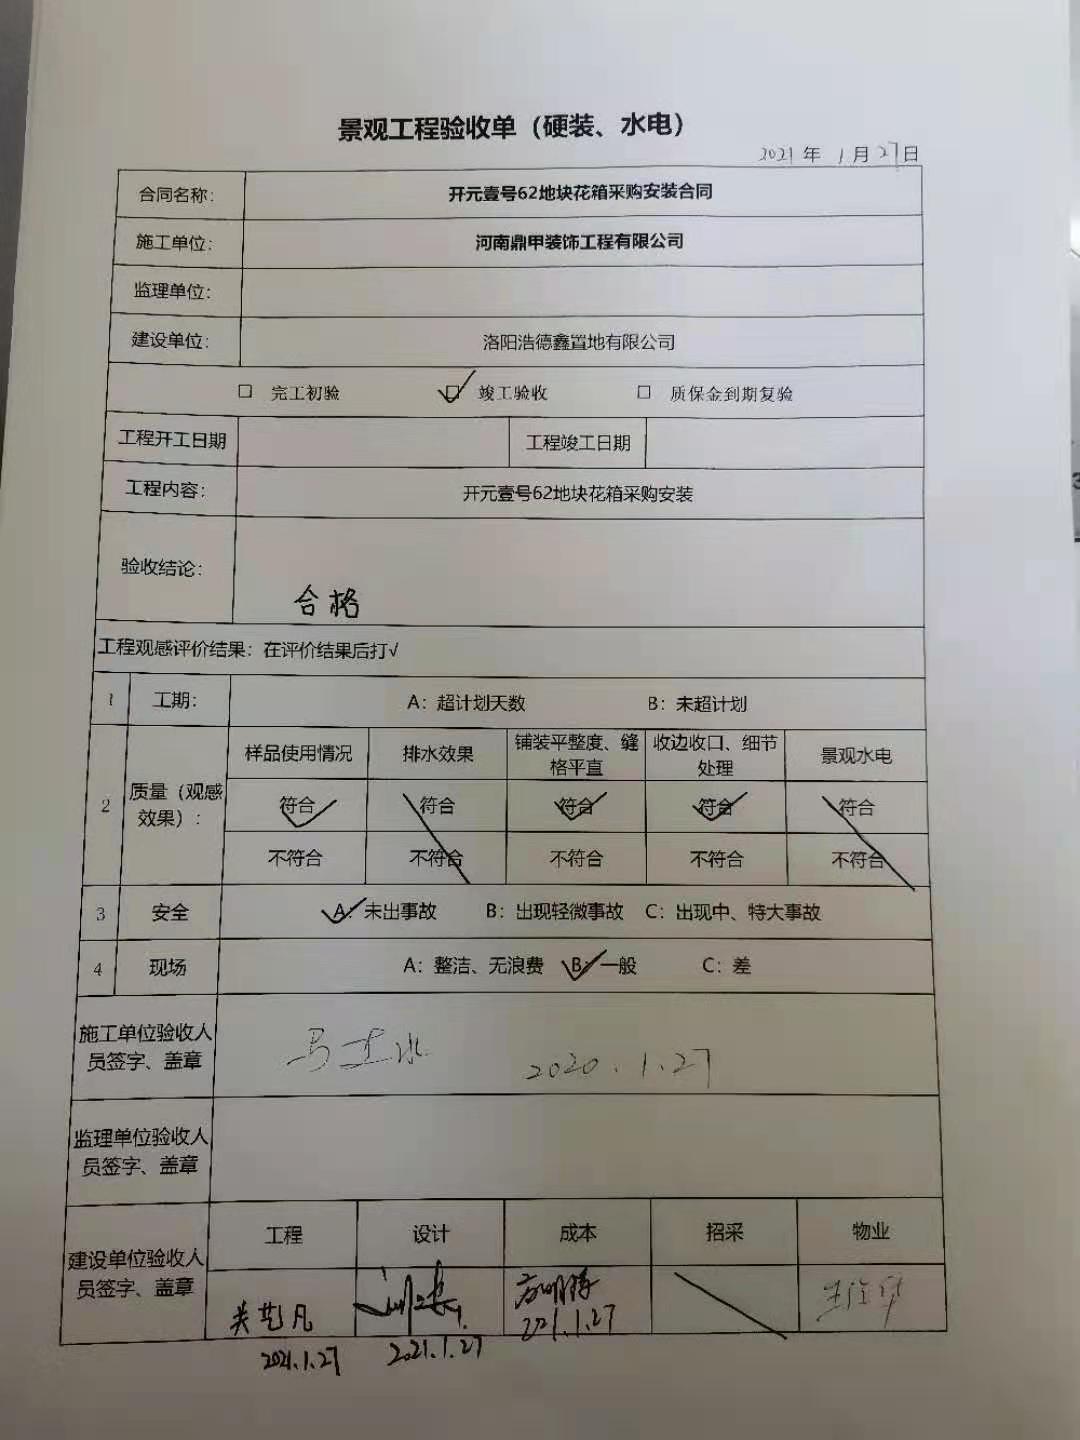 景观工程验收单（硬装、水电）
2021 年 1 月 27 日
合同名称： 开元壹号62地块花箱采购安装合同
施工单位： 河南鼎甲装饰工程有限公司
监理单位：
建设单位： 洛阳浩德鑫置地有限公司
□ 完工初验 ☑ 竣工验收 □ 质保金到期复验
工程开工日期 工程竣工日期
工程内容： 开元壹号62地块花箱采购安装
验收结论： 合格
工程观感评价结果：在评价结果后打√
1 工期： A：超计划天数 B：未超计划
样品使用情况 排水效果 铺装平整度、缝格平直 收边收口、细节处理 景观水电
2 质量（观感效果）： 符合 符合 符合 符合 符合
不符合 不符合 不符合 不符合 不符合
3 安全 A：未出事故 B：出现轻微事故 C：出现中、特大事故
4 现场 A：整洁、无浪费 B：一般 C：差
施工单位验收人
员签字、盖章
2020.1.27
监理单位验收人
员签字、盖章
建设单位验收人
员签字、盖章
工程 设计 成本 招采 物业
2021.1.27 2021.1.27 2021.1.27